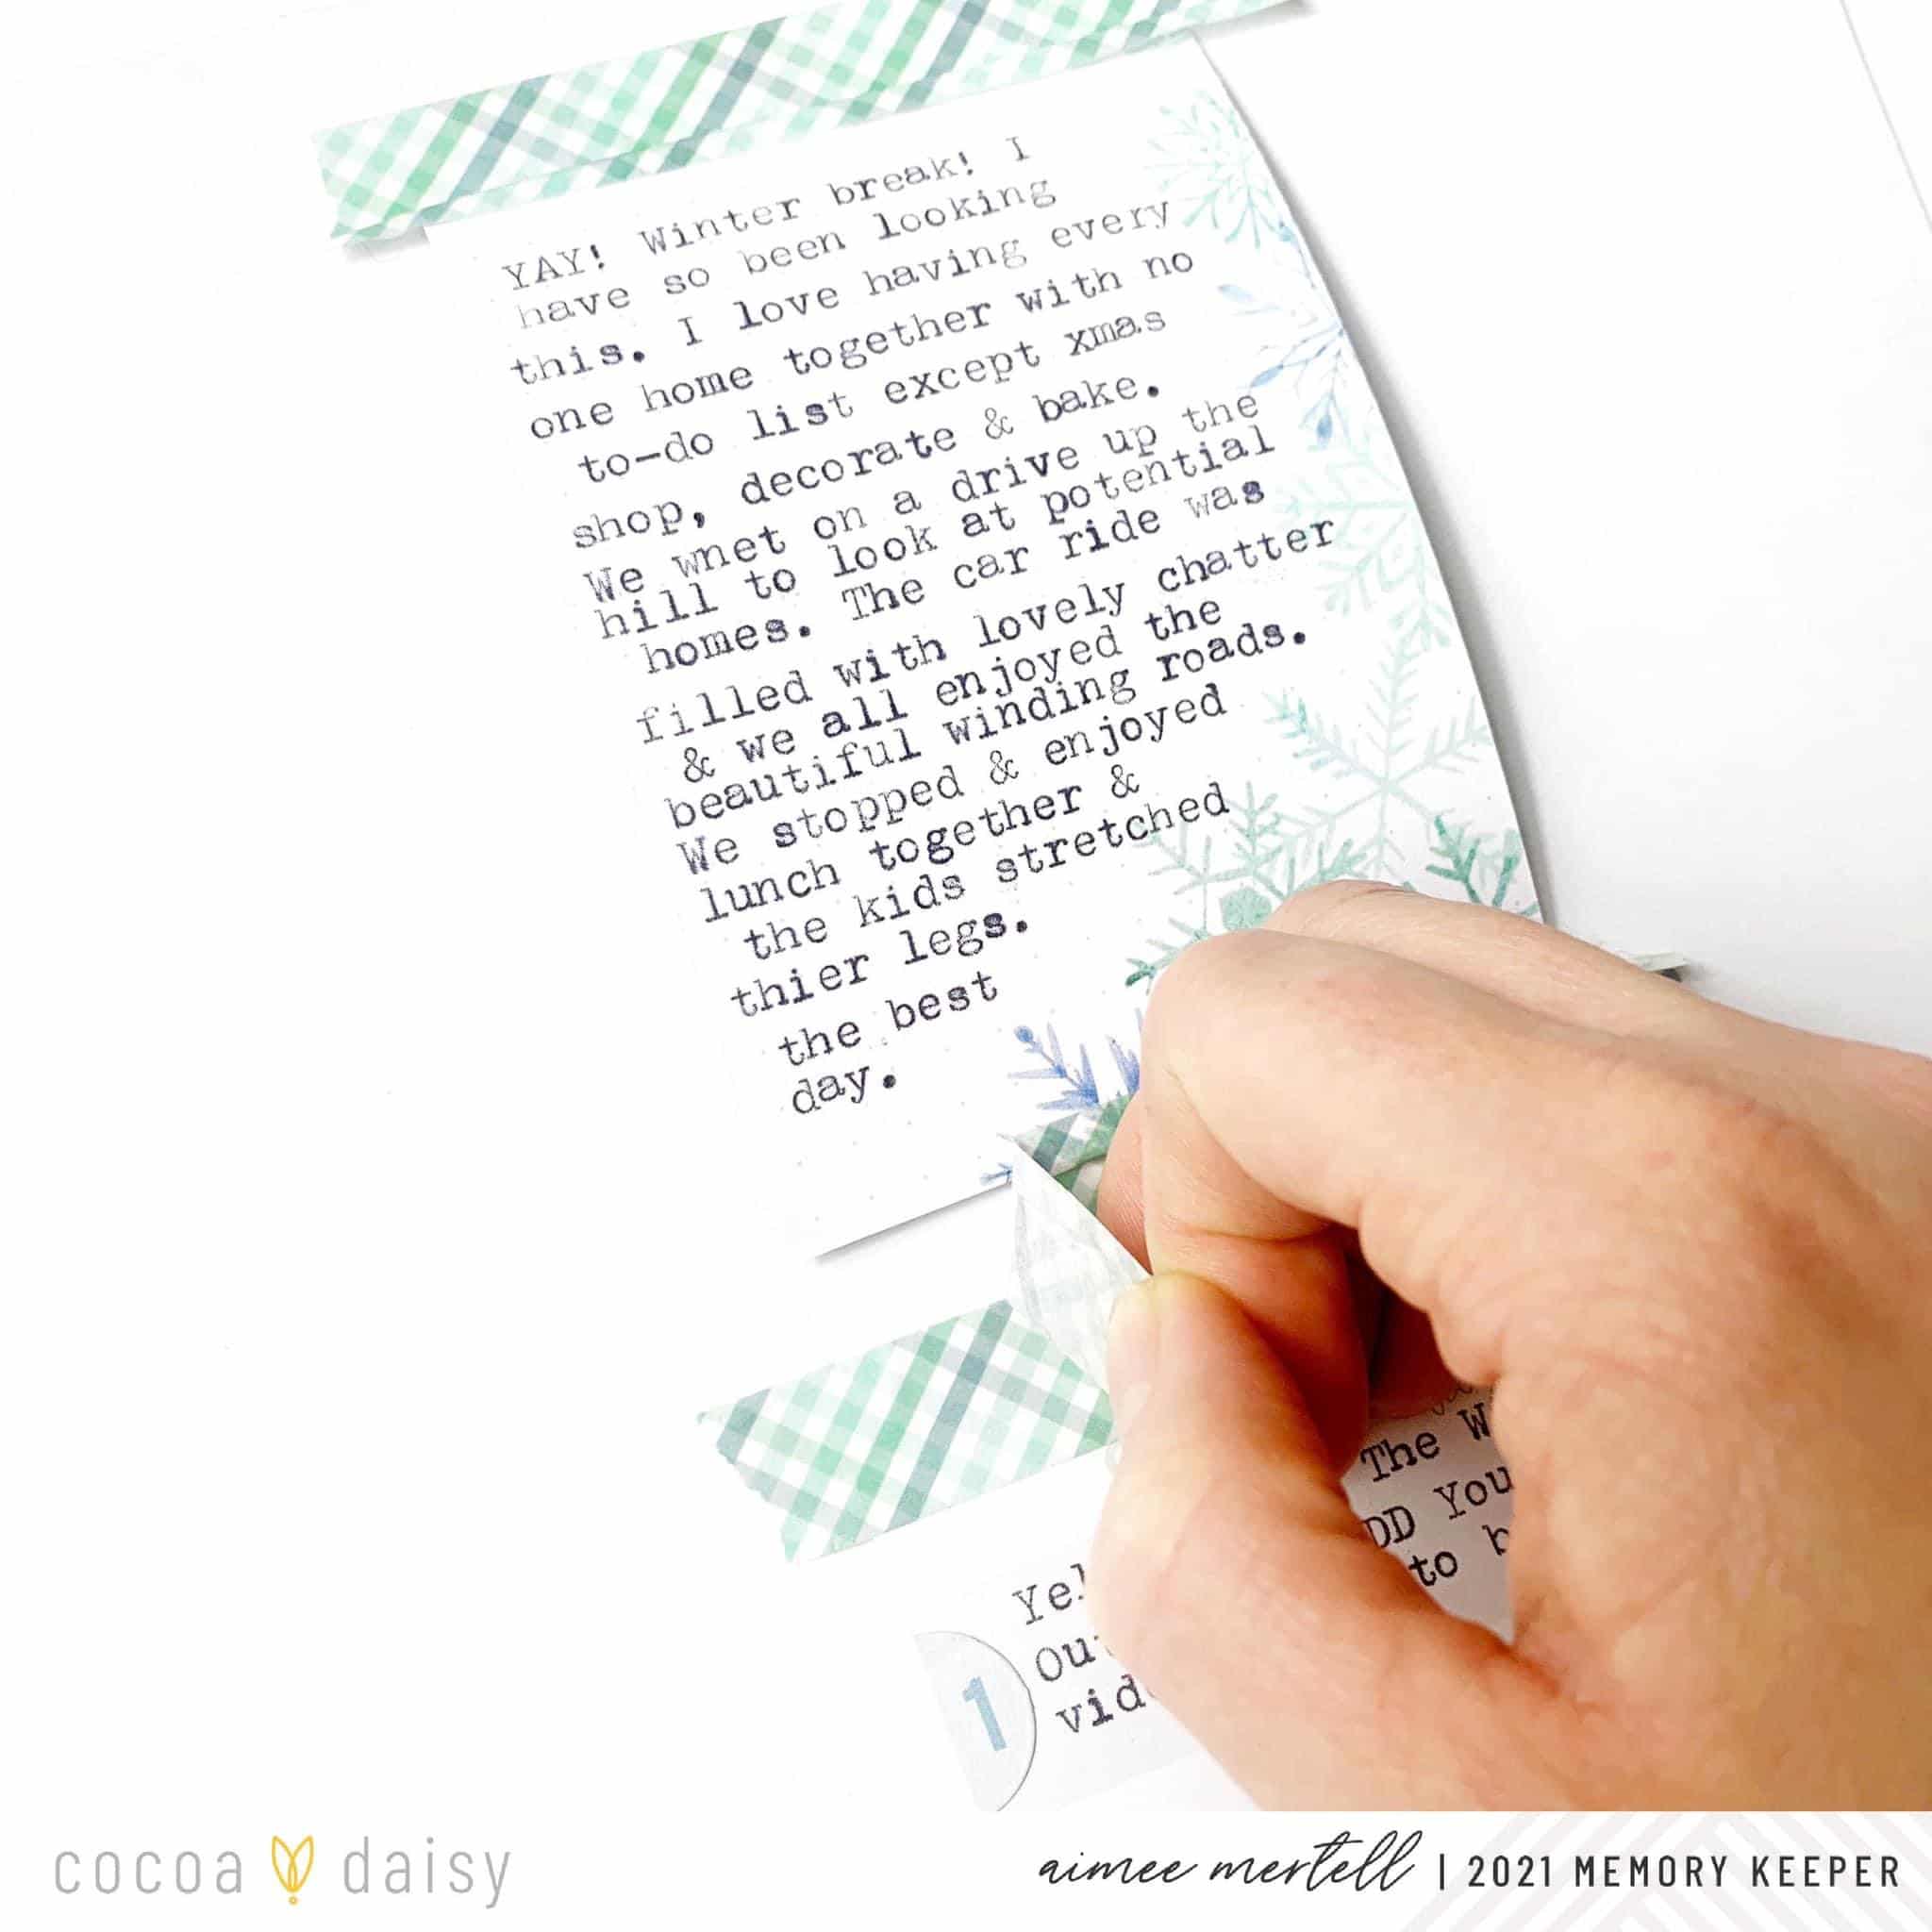 YAY! Winter break! I
have so been looking
this. I love having every
one home together with no
to-do list except xmas
shop, decorate & bake.
We wnet on a drive up the
hill to look at potential
homes. The car ride was
filled with lovely chatter
& we all enjoyed the
beautiful winding roads.
We stopped & enjoyed
lunch together &
the kids stretched
thier legs.
the best
day.
The
You
to
1
cocoa daisy
aimee mertell | 2021 MEMORY KEEPER